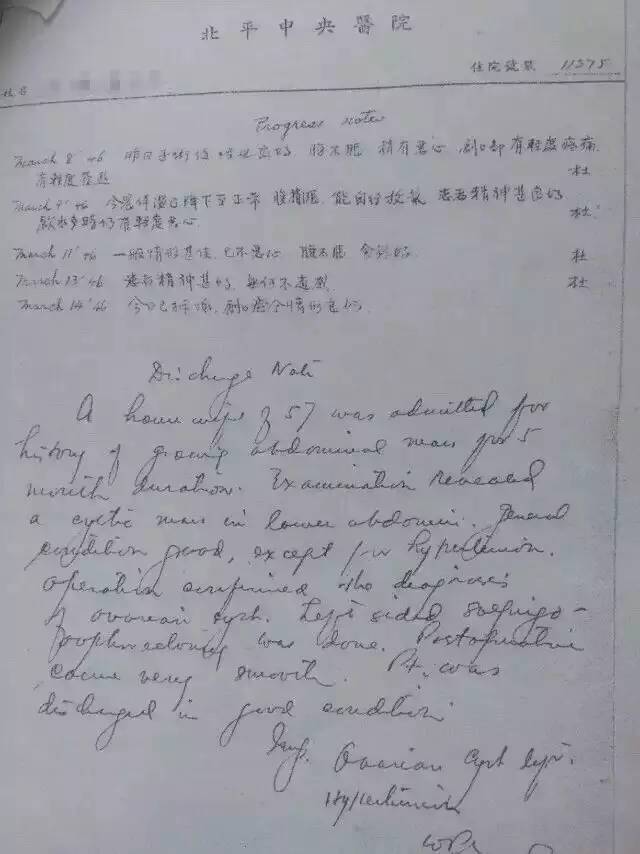 北平中央醫院
住院號數 11375
姓名
Progress notes
March 8 '46 昨日手術後情形良好, 腹不脹, 稍有惡心, 創口部有輕度疼痛,
有輕度 杜
March 9 '46 今晨体溫已降下至正常 腹稍脹, 能自行 患者精神甚良好
飲水多時仍有輕度惡心. 杜
March 11 '46 一般情形甚佳, 已不惡心 腹不脹 杜
March 13 '46 患者精神甚好, 無何不適 杜
March 14 '46 今日已拆線, 創口癒合情形良好.
Discharge Note
A housewife of 57 was admitted for
history of growing abdominal mass for 5
month duration. Examination revealed
a cystic mass in lower abdomen. General
condition good, except for hypertension.
Operation confirmed the diagnosis
of ovarian cyst. Left sided salpingo-
oophorectomy was done. Postoperative
course very smooth. Pt. was
discharged in good condition.
Ovarian Cyst left.
Hypertension